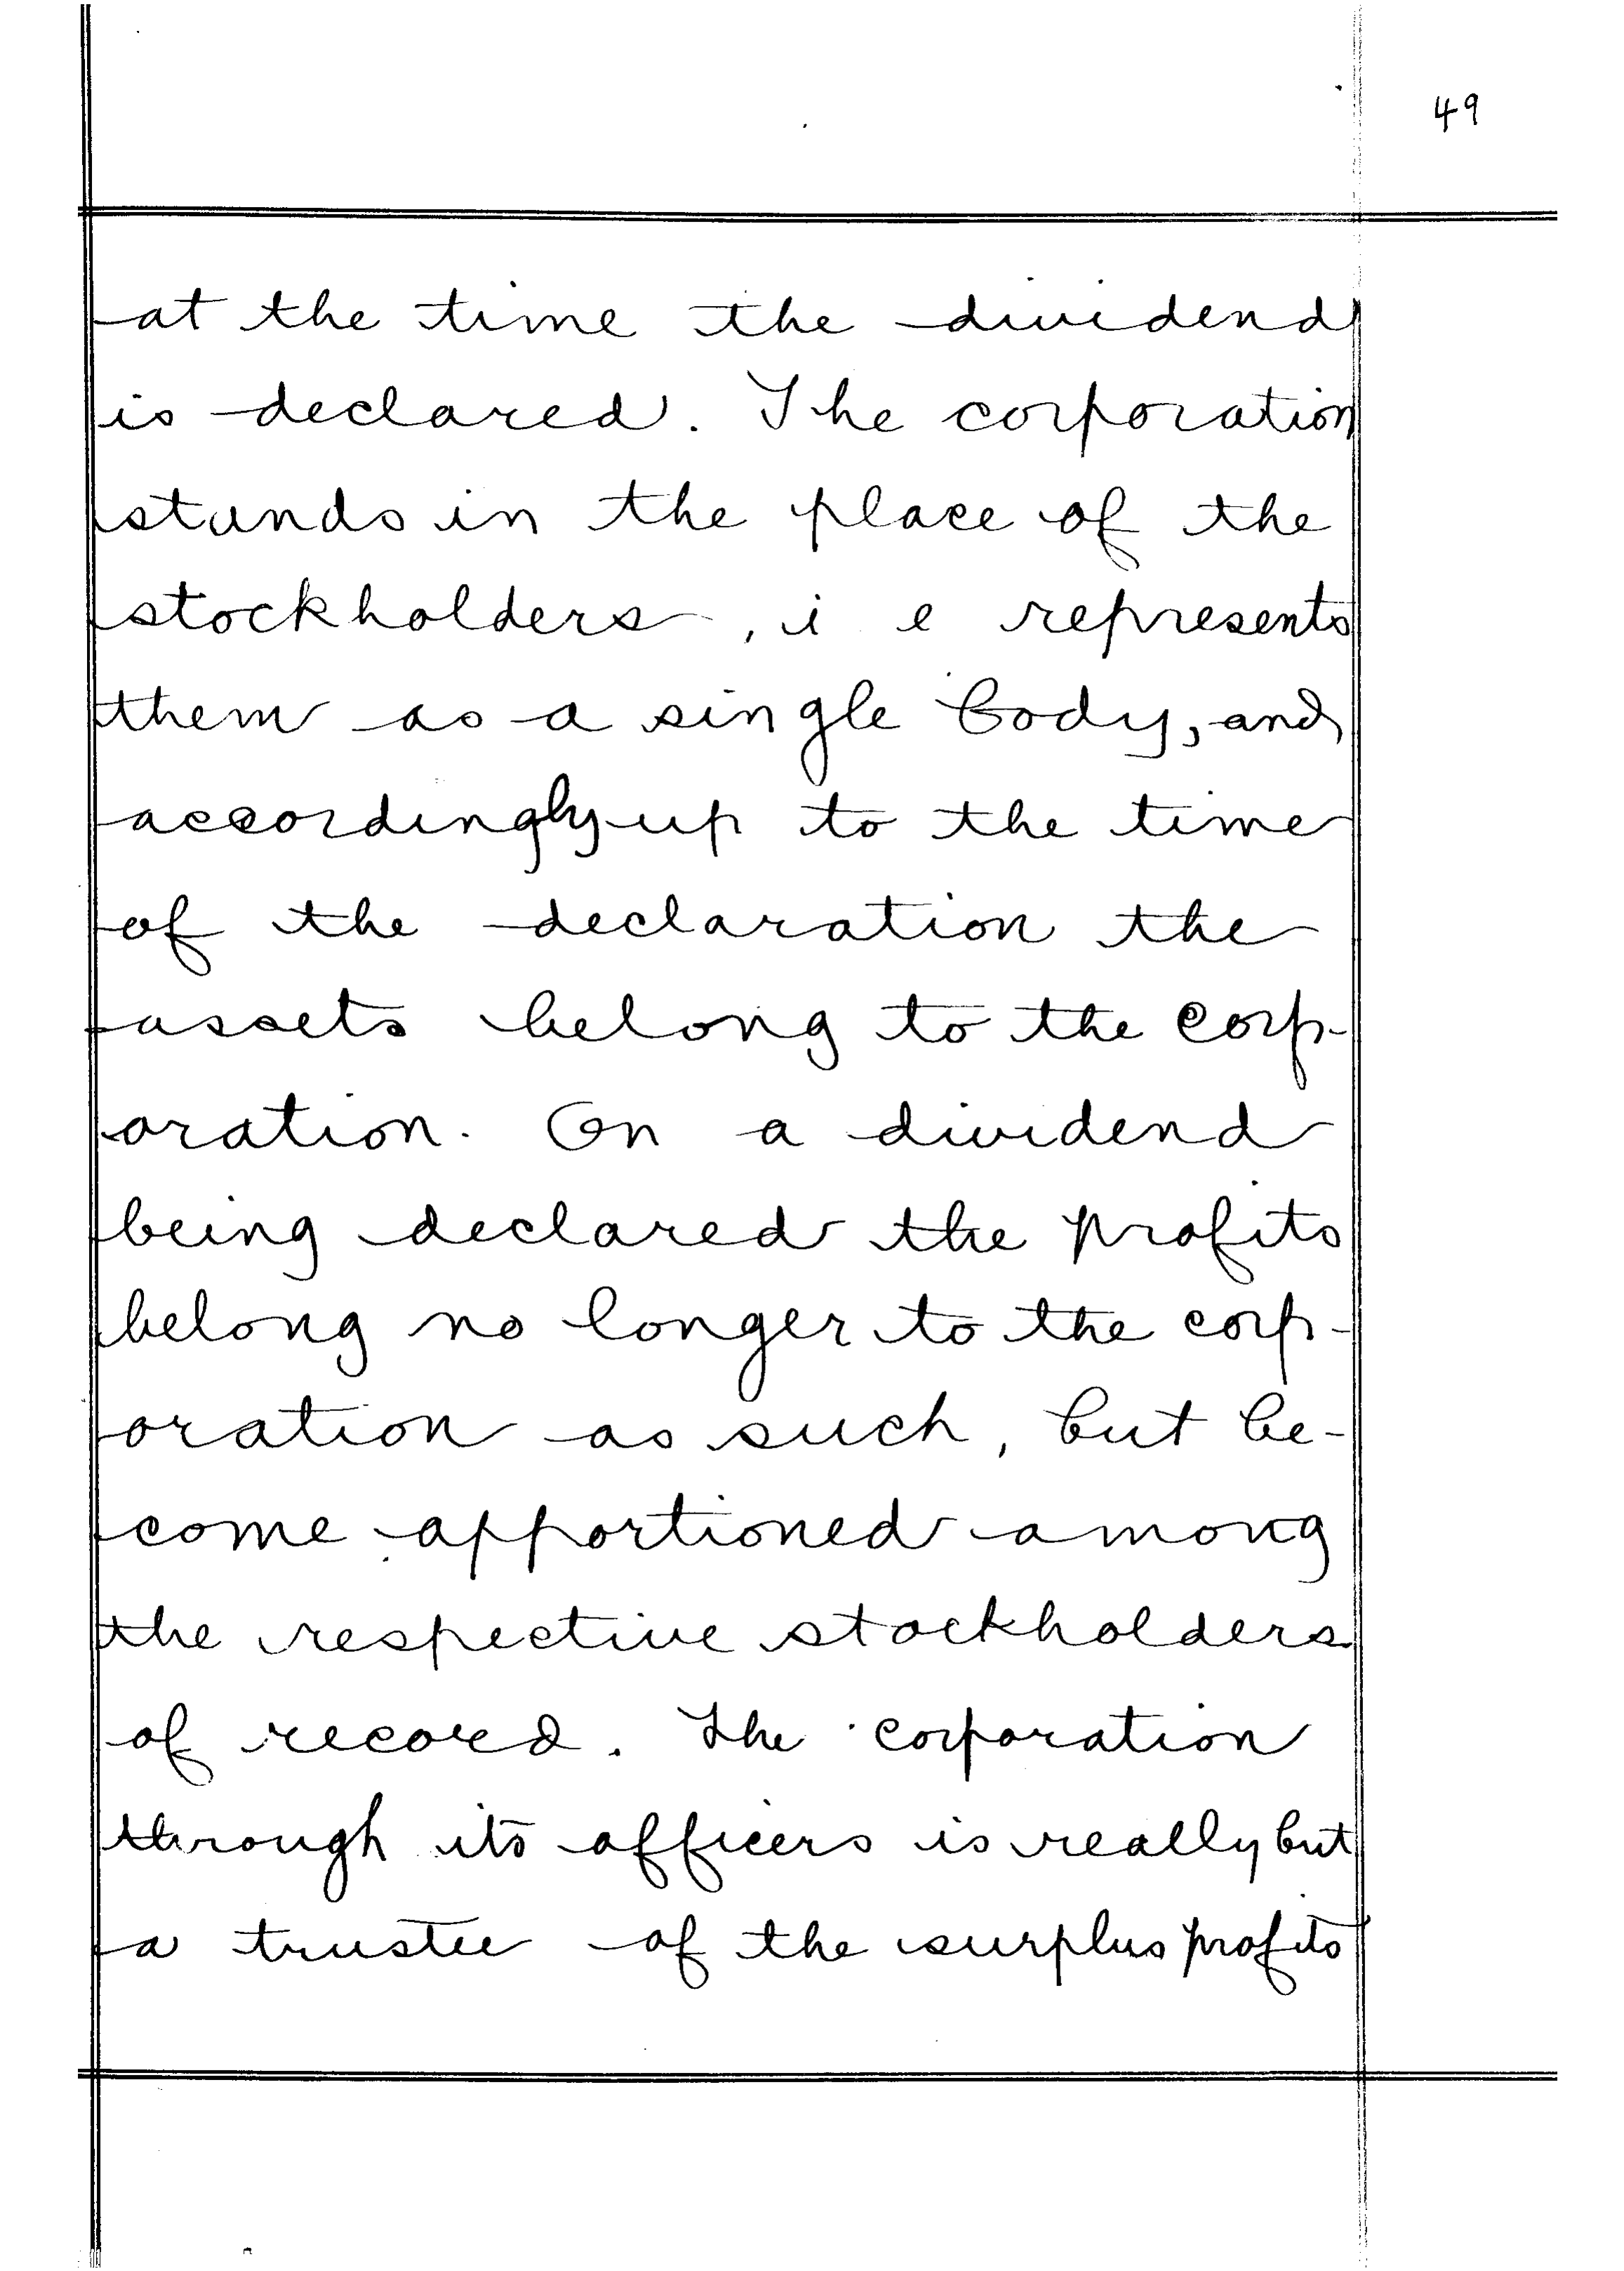 49
at the time the dividend
is declared. The corporation
stands in the place of the
stockholders, i e represents
them as a single body, and
accordingly up to the time
of the declaration the
assets belong to the corp-
oration. On a dividend
being declared the profits
belong no longer to the corp-
oration as such, but be-
come apportioned among
the respective stockholders
of record. The corporation
through its officers is really but
a trustee of the surplus profits